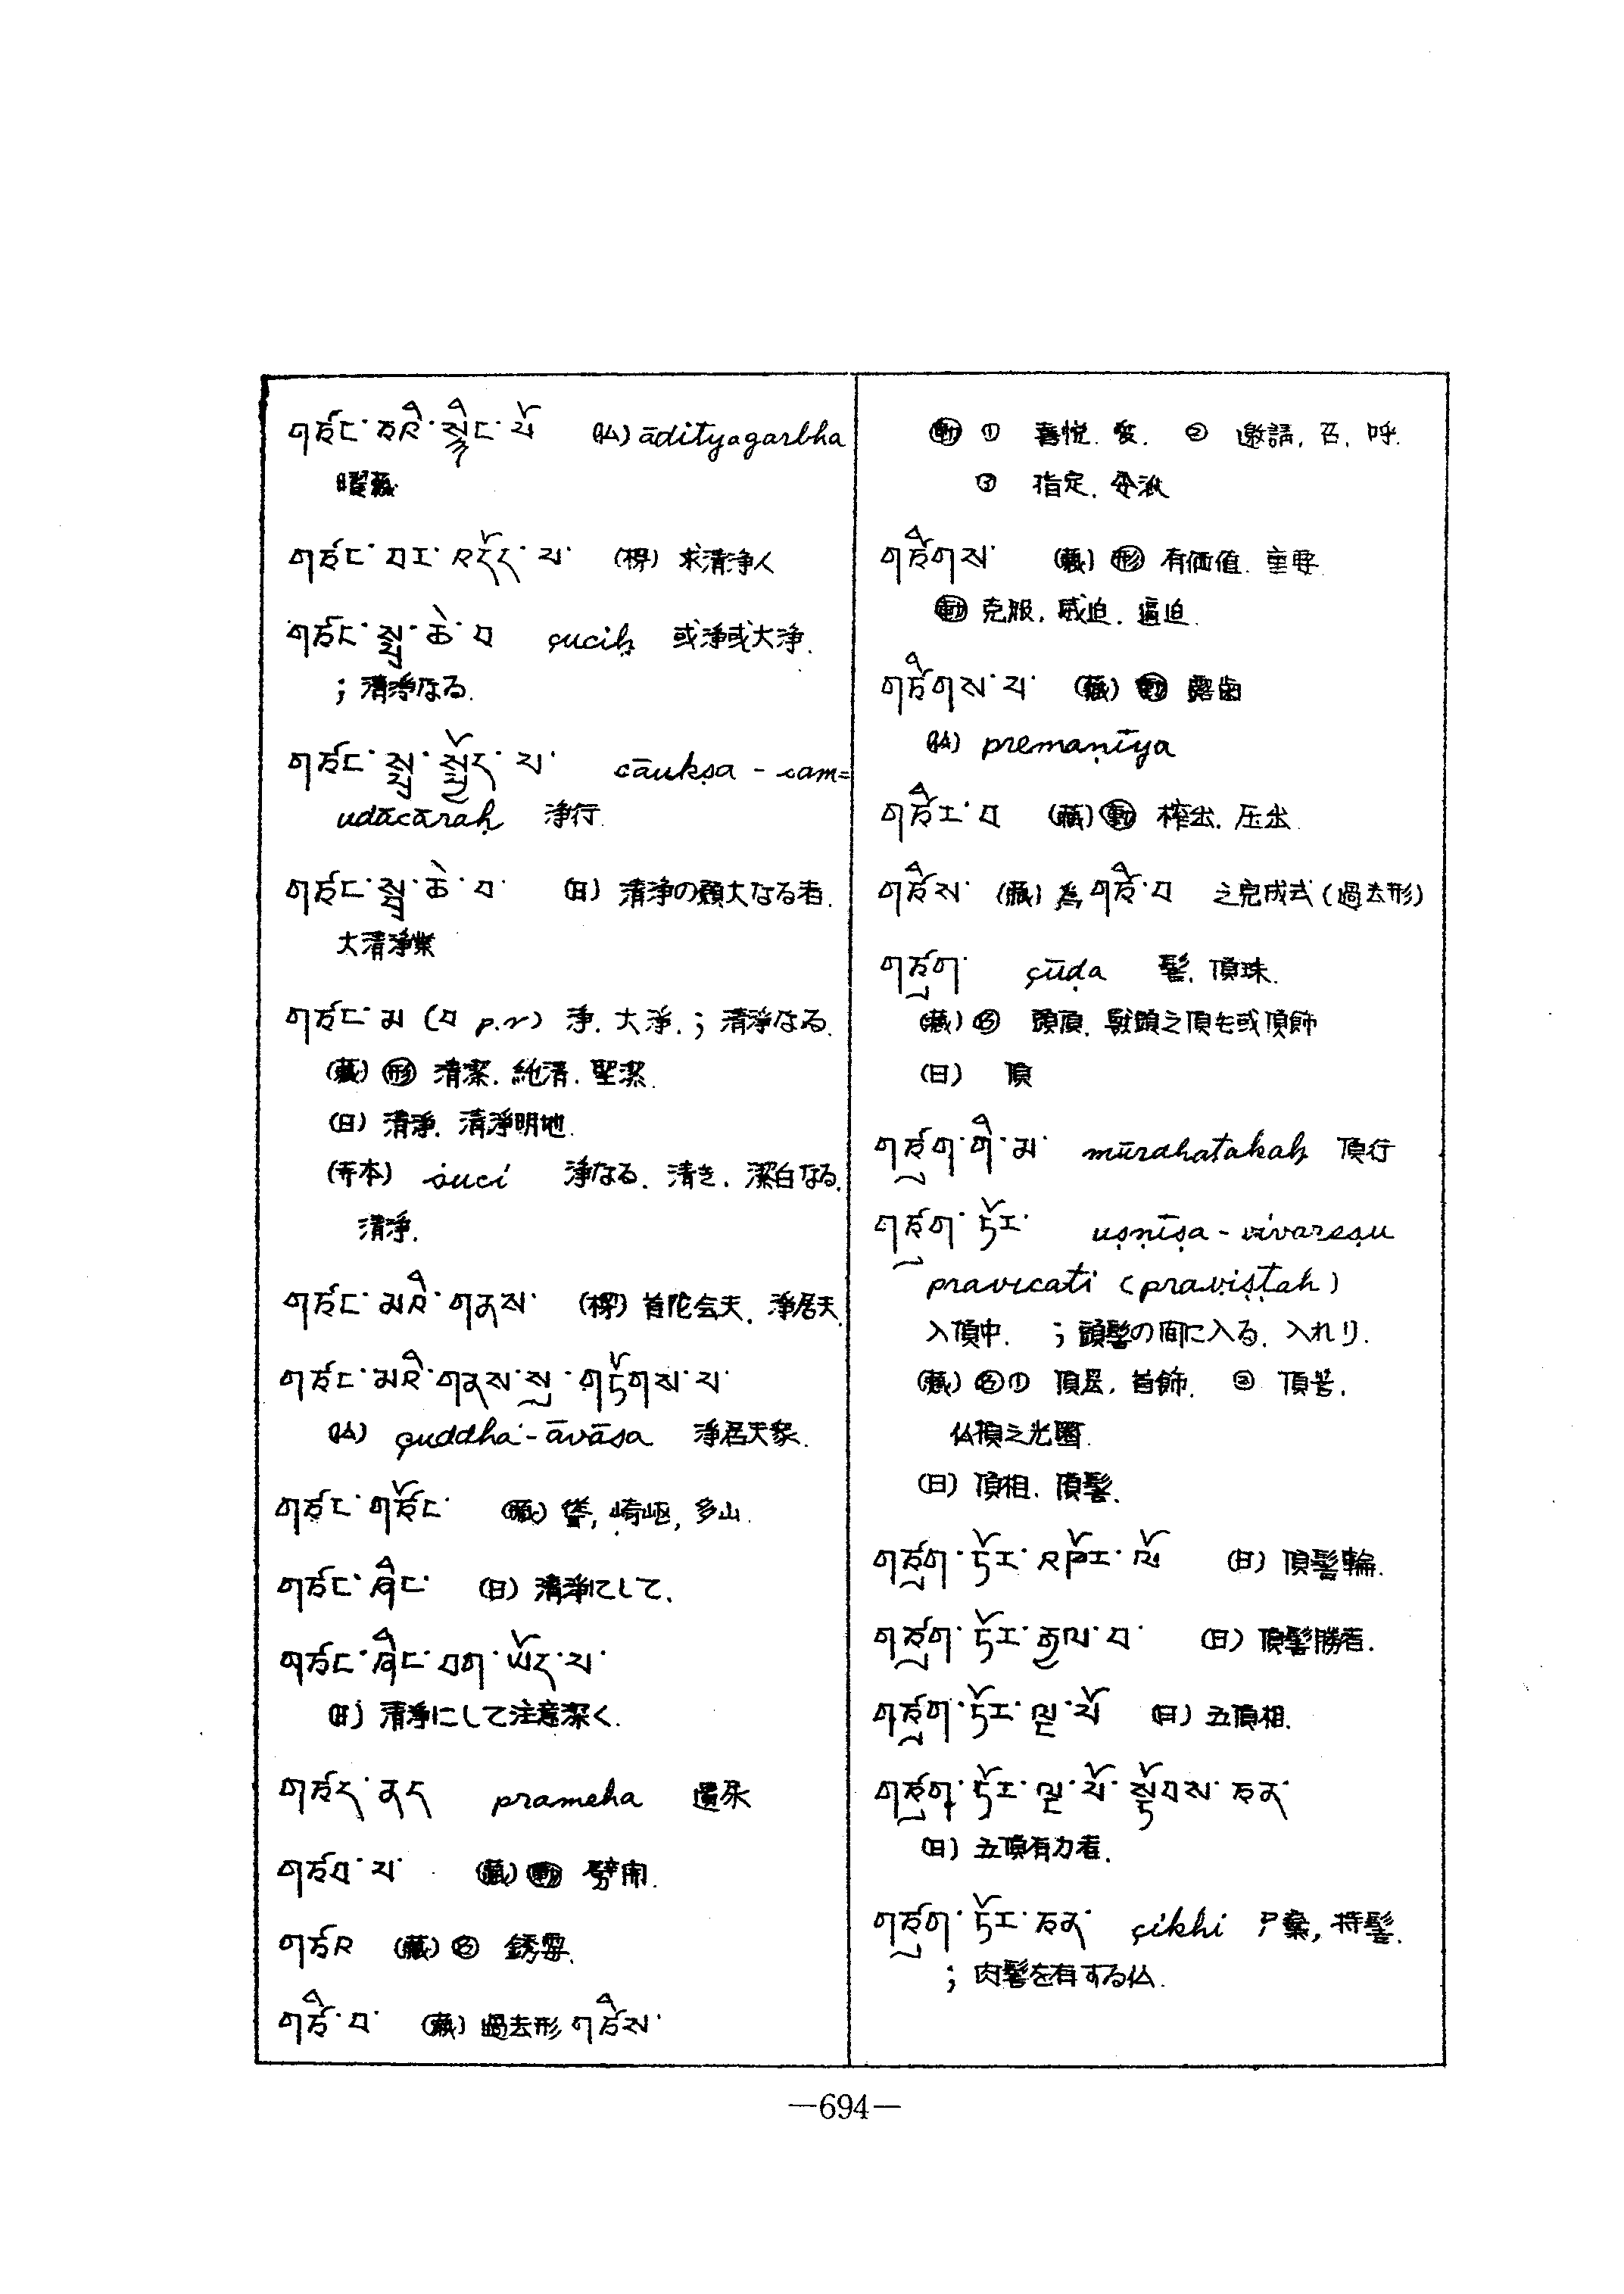 གཙང་ཙའི་སྙིང་པོ (仏) ādityagarbha
曜蔵
གཙང་བར་འདོད་པ་ (樗) 求清浄人
གཙང་སྦྲ་ཆེ་བ çuciḥ 或浄或大浄.
; 清浄なる.
གཙང་སྦྲ་སྤྱོད་པ་ cāukṣa - sam=
udācāraḥ 浄行.
གཙང་སྦྲ་ཆེ་བ་ (日) 清浄の願大なる者.
大清浄業
གཙང་མ (བ p.n) 浄. 大浄. ; 清浄なる.
(蔵) 形 清潔. 純清. 聖潔.
(日) 清浄. 清浄明地.
(寺本) śuci 浄なる. 清き. 潔白なる.
清浄.
གཙང་མའི་གནས་ (樗) 首陀会天. 浄居天.
གཙང་མའི་གནས་སུ་གཏོགས་པ་
(仏) çuddha-āvāsa 浄居天衆.
གཙང་གཙོང་ (蔵) 崎岖, 多山.
གཙང་ཞིང་ (日) 清浄にして.
གཙང་ཞིང་བག་ཡོད་པ་
(日) 清浄にして注意深く.
གཙད་ནད prameha 遺尿
གཙབ་པ་ (蔵) 動 劈開.
གཙའ (蔵) 名
གཙི་བ་ (蔵) 過去形 གཙིས་
動 ① 喜悦. 愛. ② 邀請. 召. 呼.
③ 指定. 分派
གཙིགས་ (蔵) 形 有価値. 重要.
動 克服. 威迫. 逼迫.
གཙིགས་པ་ (蔵) 動 露歯
(仏) premaṇīya
གཙིར་བ (蔵) 動 榨出. 压出.
གཙིས་ (蔵) 為 གཙི་བ 之完成式 (過去形)
གཙུག་ çūḍa 髻. 頂珠.
(蔵) 名 頭頂. 獣頭之頂毛或頂飾
(日) 頂
གཙུག་གི་མ་ mūrdhatakaḥ 頂行
གཙུག་ཏོར་ uṣṇīṣa - vivareṣu
pravicati (praviṣṭah)
入頂中. ; 頭髻の間に入る. 入れり.
(蔵) 名 ① 頂髷. 首飾. ② 頂髻.
仏頂之光圏.
(日) 頂相. 頂髻.
གཙུག་ཏོར་འཁོར་ལོ (日) 頂髻輪.
གཙུག་ཏོར་རྒྱལ་བ་ (日) 頂髻勝者.
གཙུག་ཏོར་ལྔ་པོ (日) 五頂相.
གཙུག་ཏོར་ལྔ་པོ་སྟོབས་ཅན་
(日) 五頂有力者.
གཙུག་ཏོར་ཅན་ çikhi 尸棄, 持髻.
; 肉髻を有する仏.
—694—